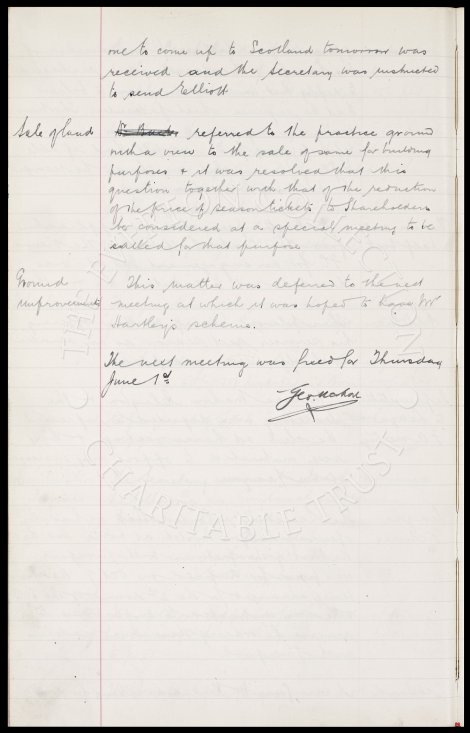 one to come up to Scotland tomorrow was
received and the Secretary was instructed
to send Elliott
Sale of land
referred to the practice ground
with a view to the sale of same for building
purposes & it was resolved that this
question together with that of the reduction
of the price of season tickets to Shareholders
be considered at a special meeting to be
called for that purpose
Ground
improvements
This matter was deferred to the next
meeting at which it was hoped to have Mr
Hartley's scheme.
The next meeting was fixed for Thursday
June 1st
Geo. Mahon
CHARITABLE TRUST